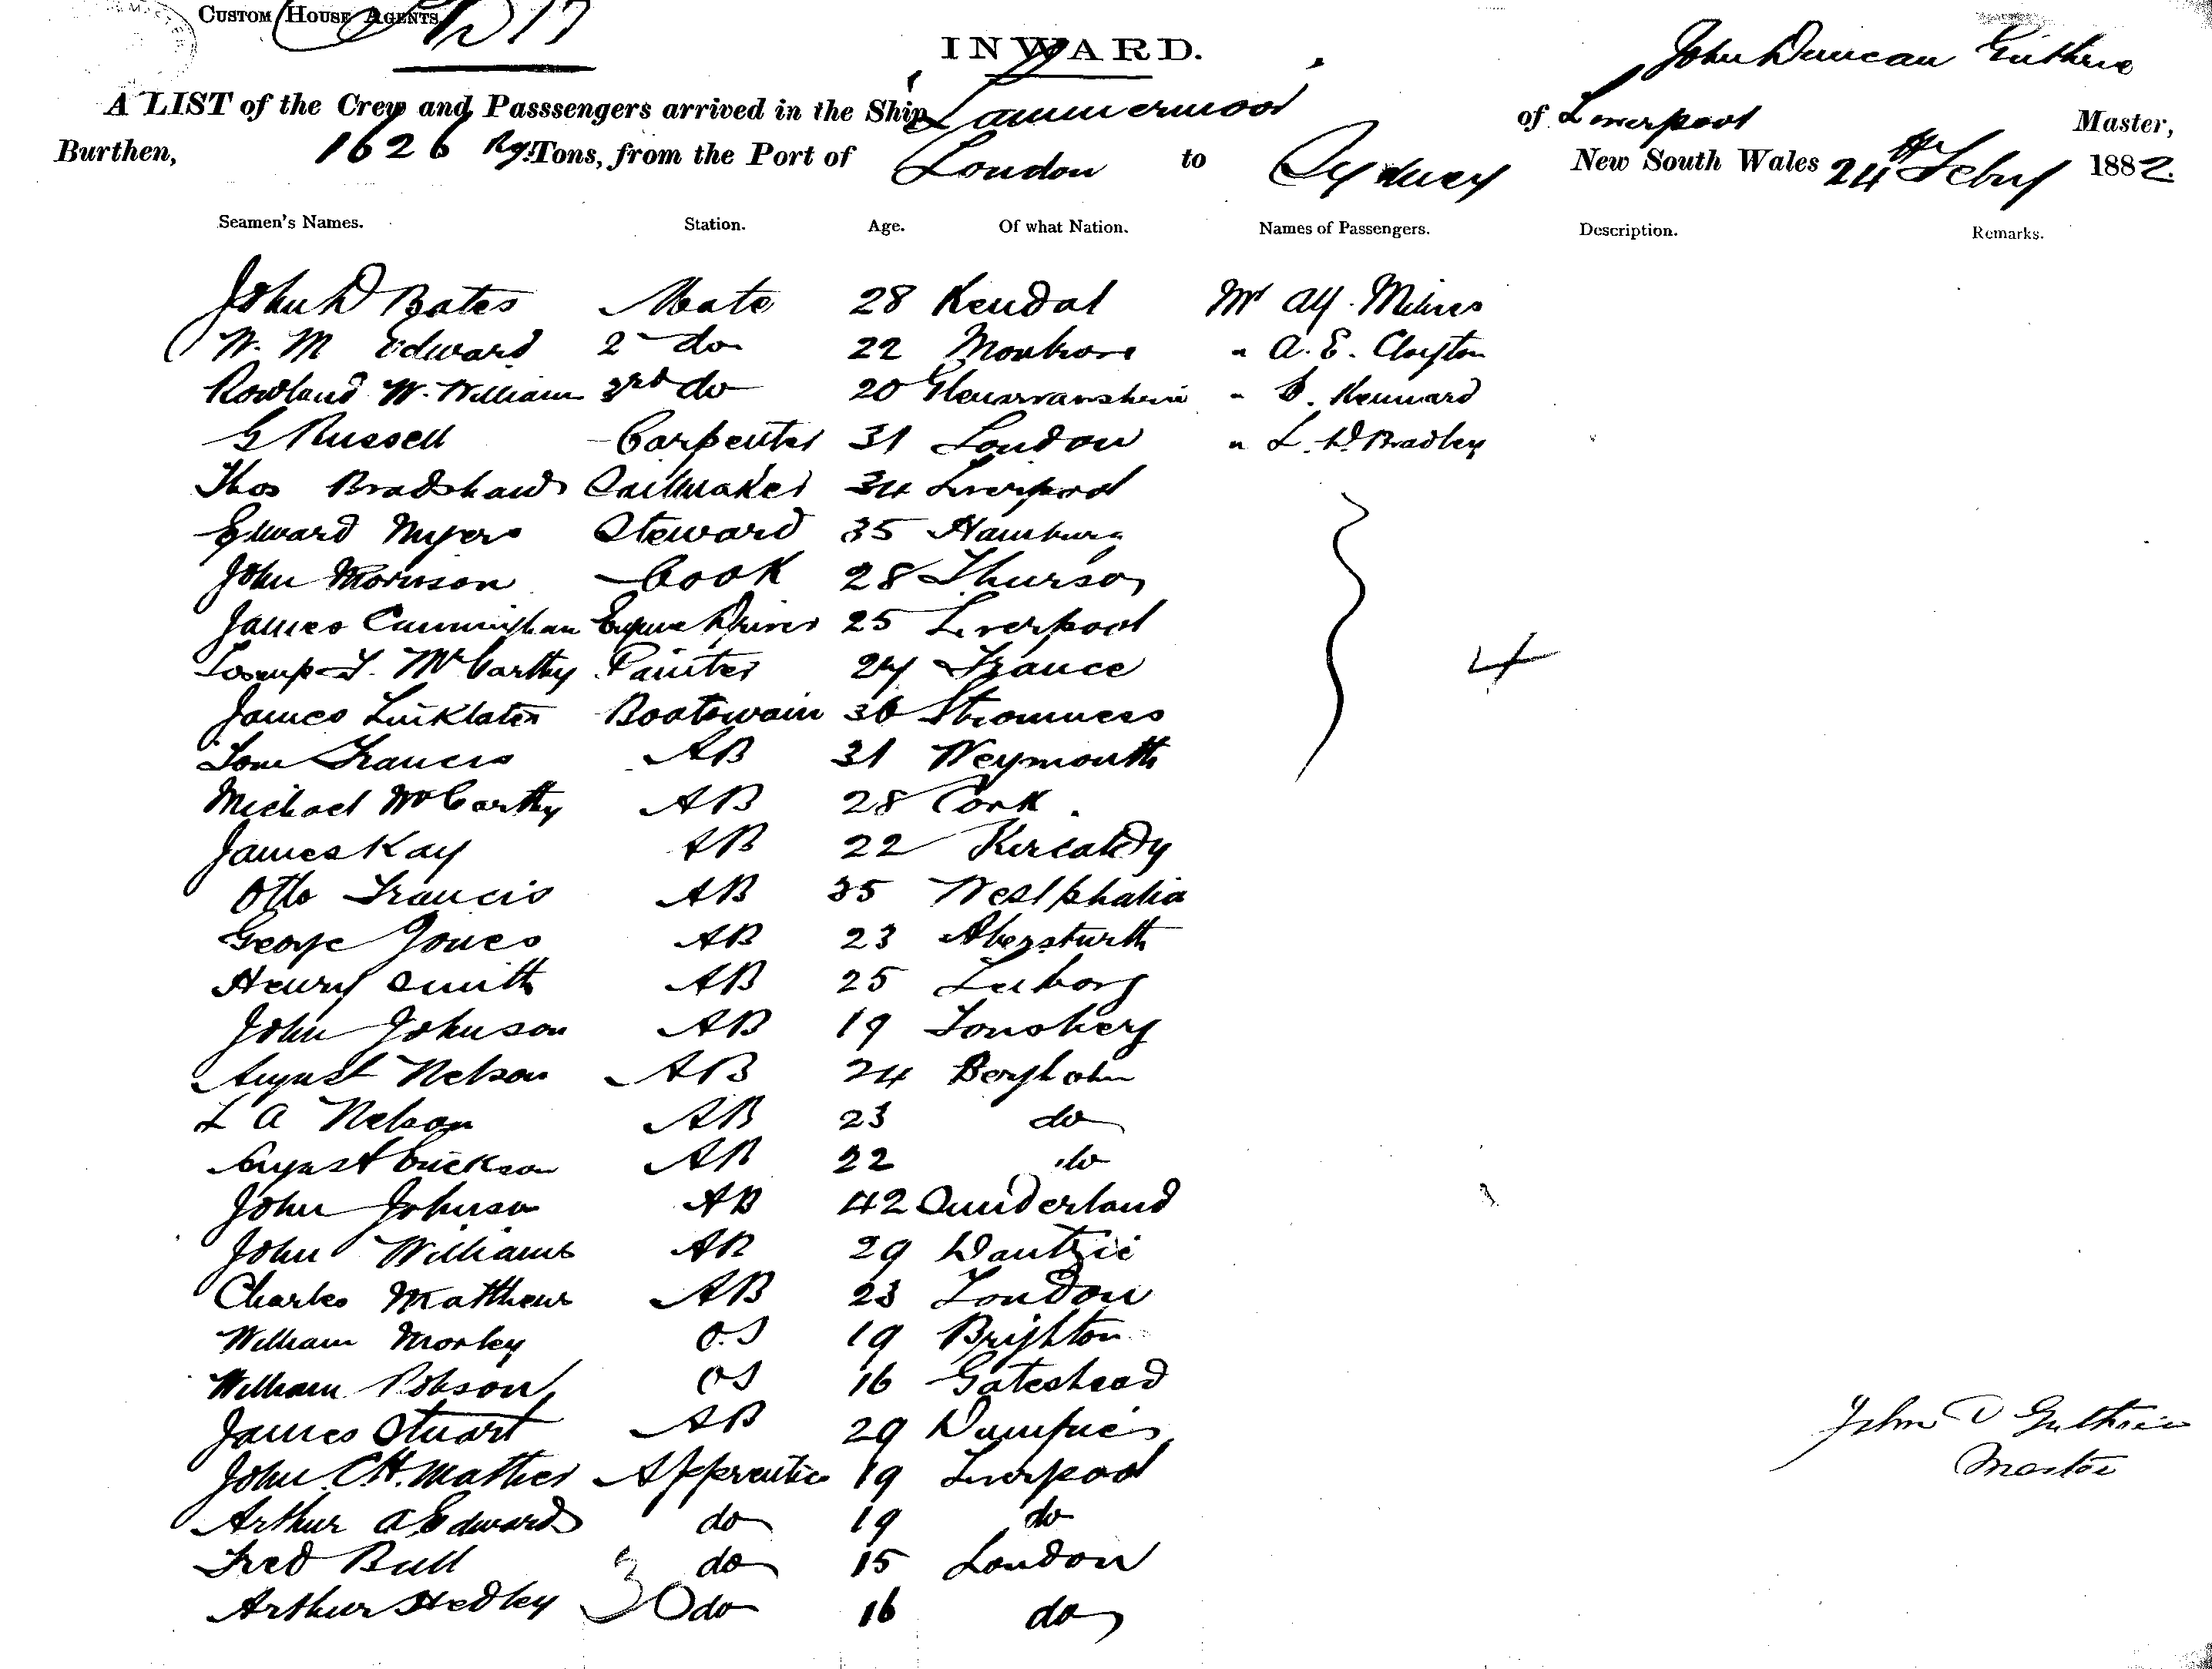 CUSTOM HOUSE AGENTS
INWARD.
John Duncan Guthrie
A LIST of the Crew and Passsengers arrived in the Ship Lammermoor of Liverpool Master,
Burthen, 1626 Rg. Tons, from the Port of London to Sydney New South Wales 24th Feby 1882.
Seamen's Names. Station. Age. Of what Nation. Names of Passengers. Description. Remarks.
John D Bates Mate 28 Kendal Mr Alf. Milnes
W. M Edward 2 do 22 Montrose " A. E. Clayton
Rowland W. William 3rd do 20 " Kennard
G Russell Carpenter 31 London " L. D. Bradley
Thos Bradshaw Sailmaker 34 Liverpool
Edward Myers Steward 35 Hamburg
John Morrison Cook 28 Thurso
James Cunningham Engine Driver 25 Liverpool
McCarthy Painter 24 France
4
James Linklater Boatswain 36 Stromness
Tom Francis AB 31 Weymouth
Michael McCarthy AB 28 Cork.
James Kay AB 22 Kircaldy
Otto Francis AB 35 Westphalia
George Jones AB 23
Henry Smith AB 25
John Johnson AB 19 Tonsberg
August Nelson AB 24 Bergholm
L A Nelson AB 23 do
August Erickson AB 22 do
John Johnson AB 42 Sunderland
John Williams AB 29 Dantzic
Charles Matthews AB 23 London
William Morley O.S 19 Brighton
William Robson OS 16 Gateshead
James Stuart AB 29 Dumfries
John D Guthrie
Master
John C.H. Mather Apprentice 19 Liverpool
Arthur A Edwards do 19 do
Fred Bull do 15 London
Arthur Hedley 30 do 16 do